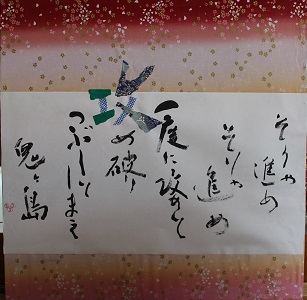 そりゃ進め
そりゃ進め
一度に攻めて
攻め破り
つぶしてしまえ
鬼が島